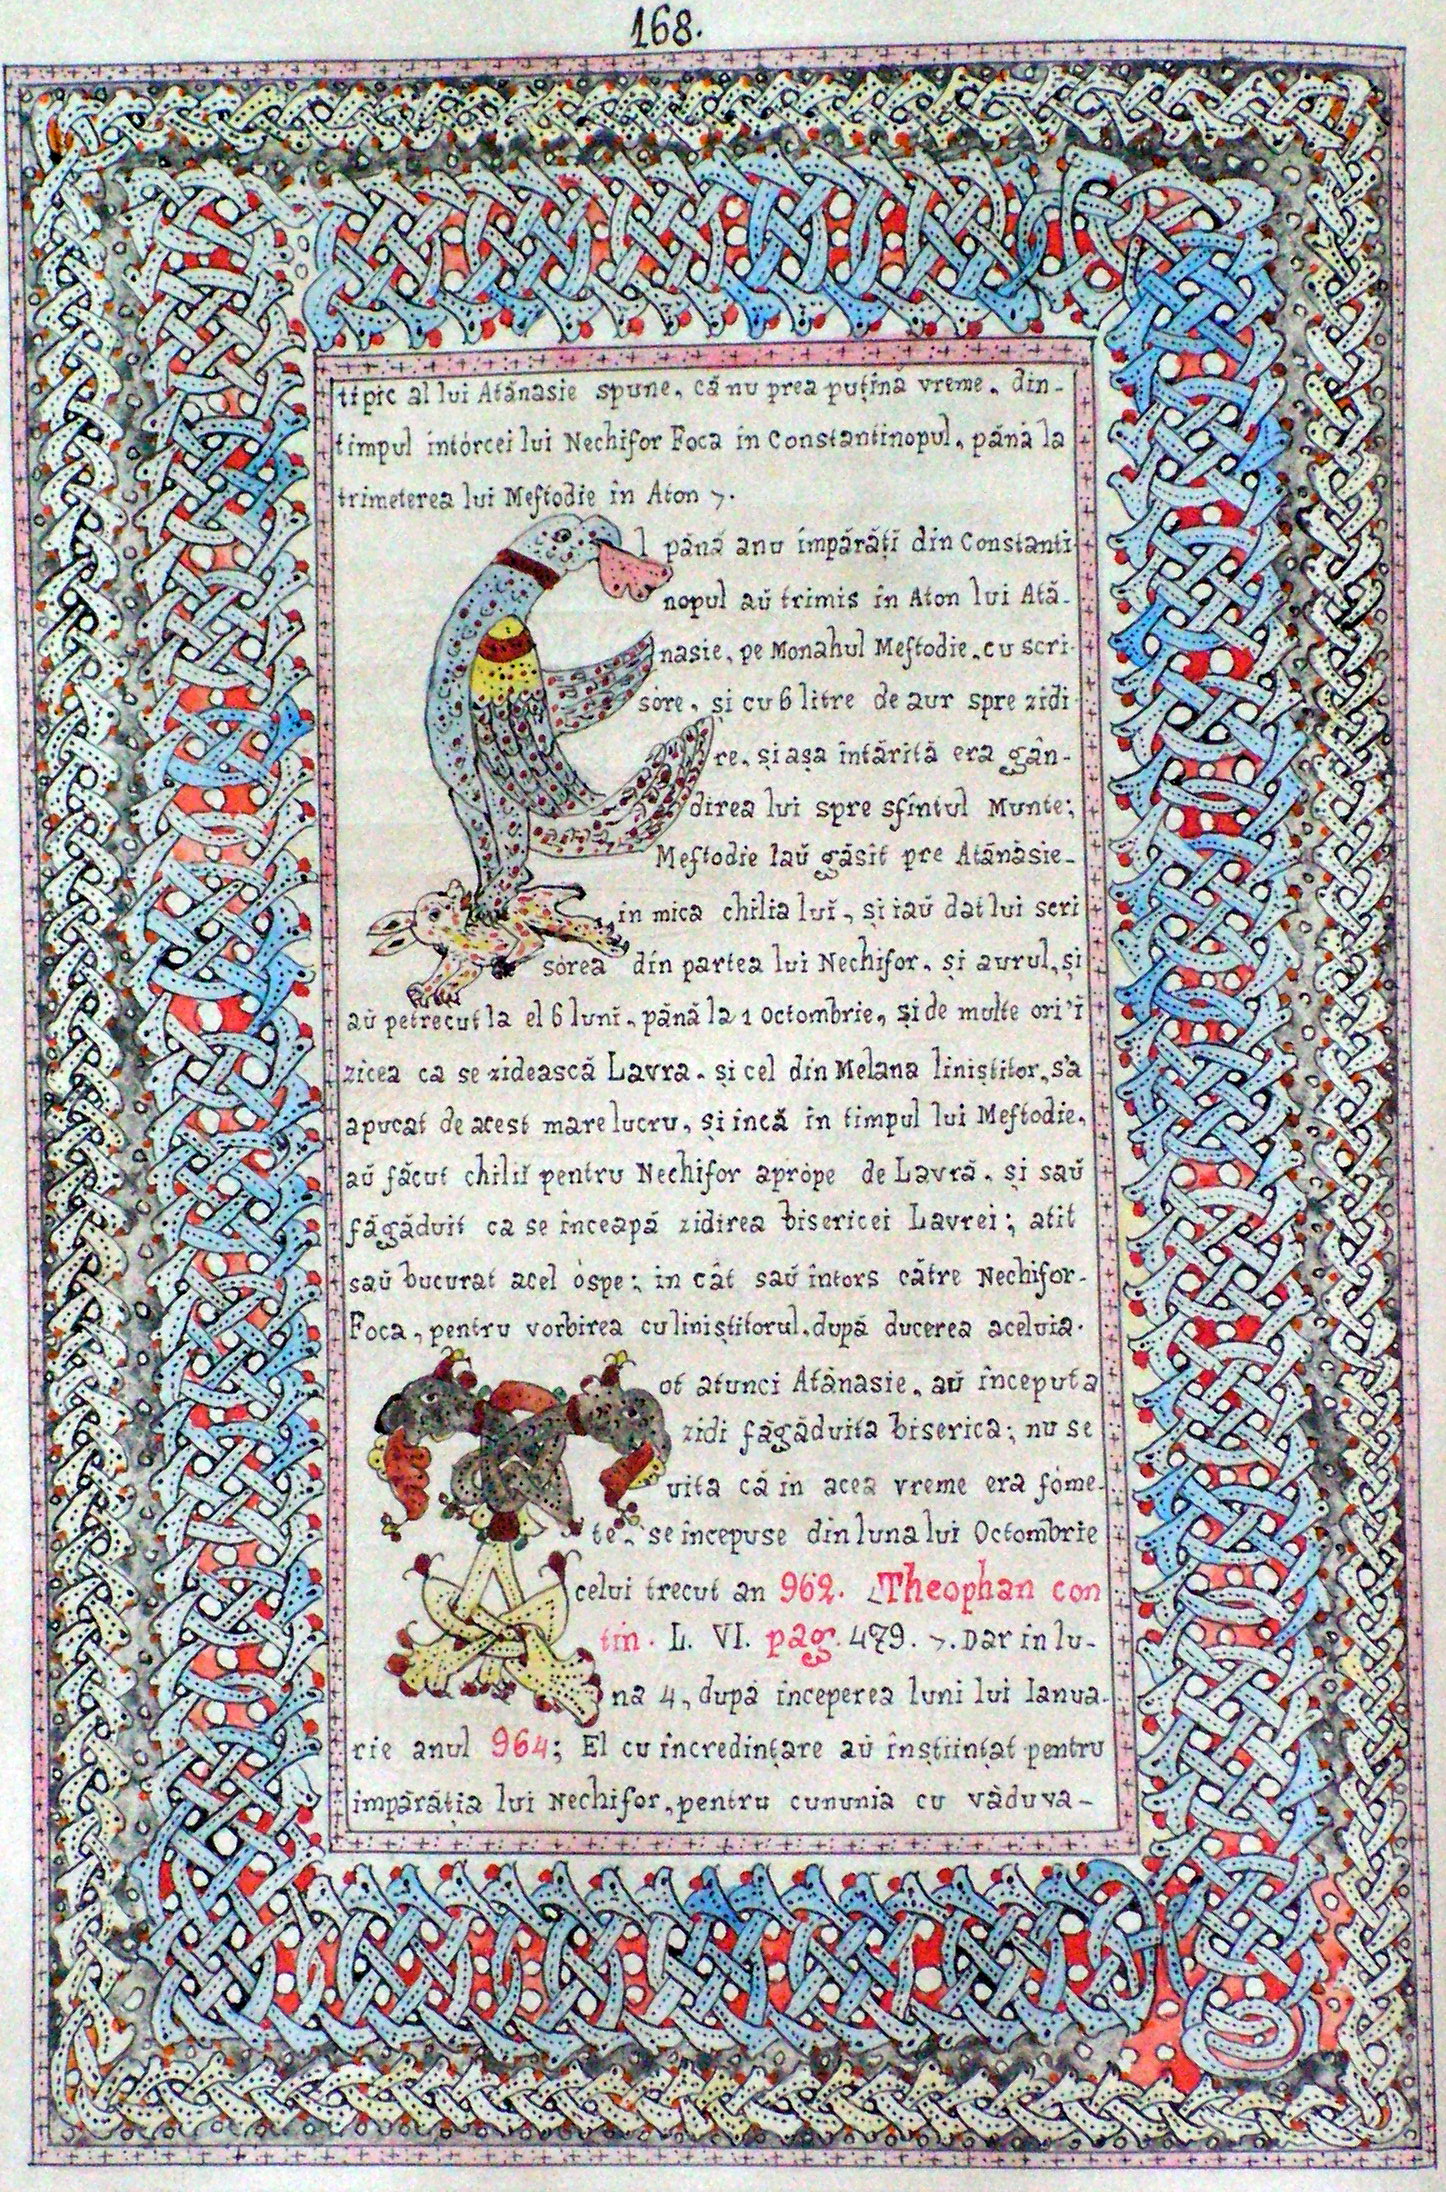 168.
tipic al lui Atănasie spune, că nu prea puțină vreme, din-
timpul intórcei lui Nechifor Foca în Constantinopul, până la
trimeterea lui Meftodie în Aton >.
El până anu împărăți din Constanti
nopul aŭ trimis în Aton lui Ată-
nasie, pe Monahul Meftodie, cu scri-
sóre, și cu 6 litre de aur spre zidi
re, și așa întărită era gân-
direa lui spre sfîntul Munte;
Meftodie laŭ găsit pre Atănăsie-
in mica chilia luĭ, și iaŭ dat lui scri
sórea din partea lui Nechifor, și aurul, și
aŭ petrecut la el 6 lunĭ, până la 1 Octombrie, și de multe ori 'ĭ
zicea ca se zidească Lavra. și cel din Melana liniștitor, s'a
apucat de acest mare lucru, și incă în timpul lui Meftodie,
aŭ făcut chiliĭ pentru Nechifor aprópe de Lavră, și saŭ
făgăduit ca se înceapă zidirea bisericei Lavrei; atit
saŭ bucurat acel óspe; in cât saŭ întors către Nechifor-
Foca, pentru vorbirea cu liniștitorul, după ducerea aceluia.
Tot atunci Atănasie, aŭ început a
zidi făgăduita biserica; nu se
uita că in acea vreme era fóme-
te, se începuse din luna lui Octombrie
celui trecut an 962. <Theophan con
tin. L. VI. pag. 479. >. Dar în lu-
na 4, după începerea luni lui Ianua-
rie anul 964; El cu încredințare aŭ înștiințat pentru
impărăția lui Nechifor, pentru cununia cu văduva-